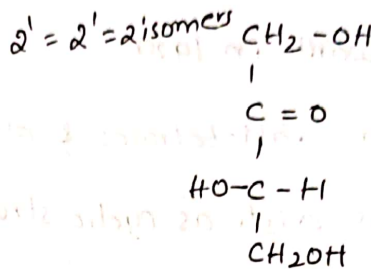 2¹ = 2¹ = 2 isomers
CH₂ - OH
|
C = O
|
HO - C - H
|
CH₂OH